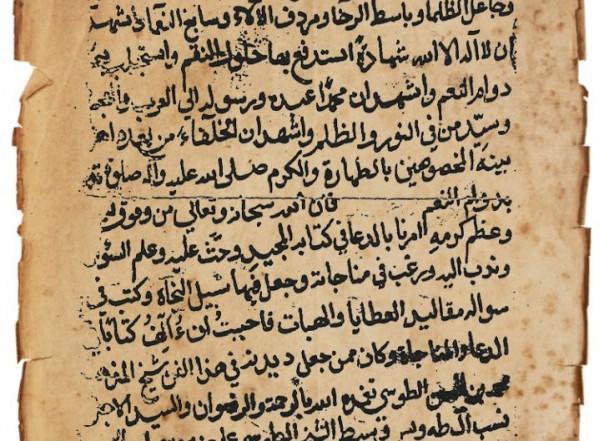 وجاعل الظلما وباسط الرخا ومردف الآلاء وسابغ النعماء اشهد
ان لا اله الا الله شهادة استدفع بها حلول النقم واستجلب بها
دوام النعم واشهد ان محمدا عبده ورسوله الي العرب والعجم
وسيد من في النور والظلم واشهد ان الخلفاء من بعده اهل
بيته المخصوصين بالطهارة والكرم صلى الله عليه وآله صلوة
النعم فان الله سبحانه وتعالي من وفور
وعظم كرمه امرنا بالدعا في كتابه المجيد وحث عليه وعلم السؤال
وندب اليه ورغب في مناجاته وجعل فيها سبيل النجاة وكتب في
سواله مقاليد العطايا والهبات فاحببت ان ءالف كتابا في
الدعا والمناجاة وكان ممن جعل ديدنه في هذا الفن شيخ
محمد بن الحسن الطوسي تغمده الله بالرحمة والرضوان والسيد
نسب آل طه ويس